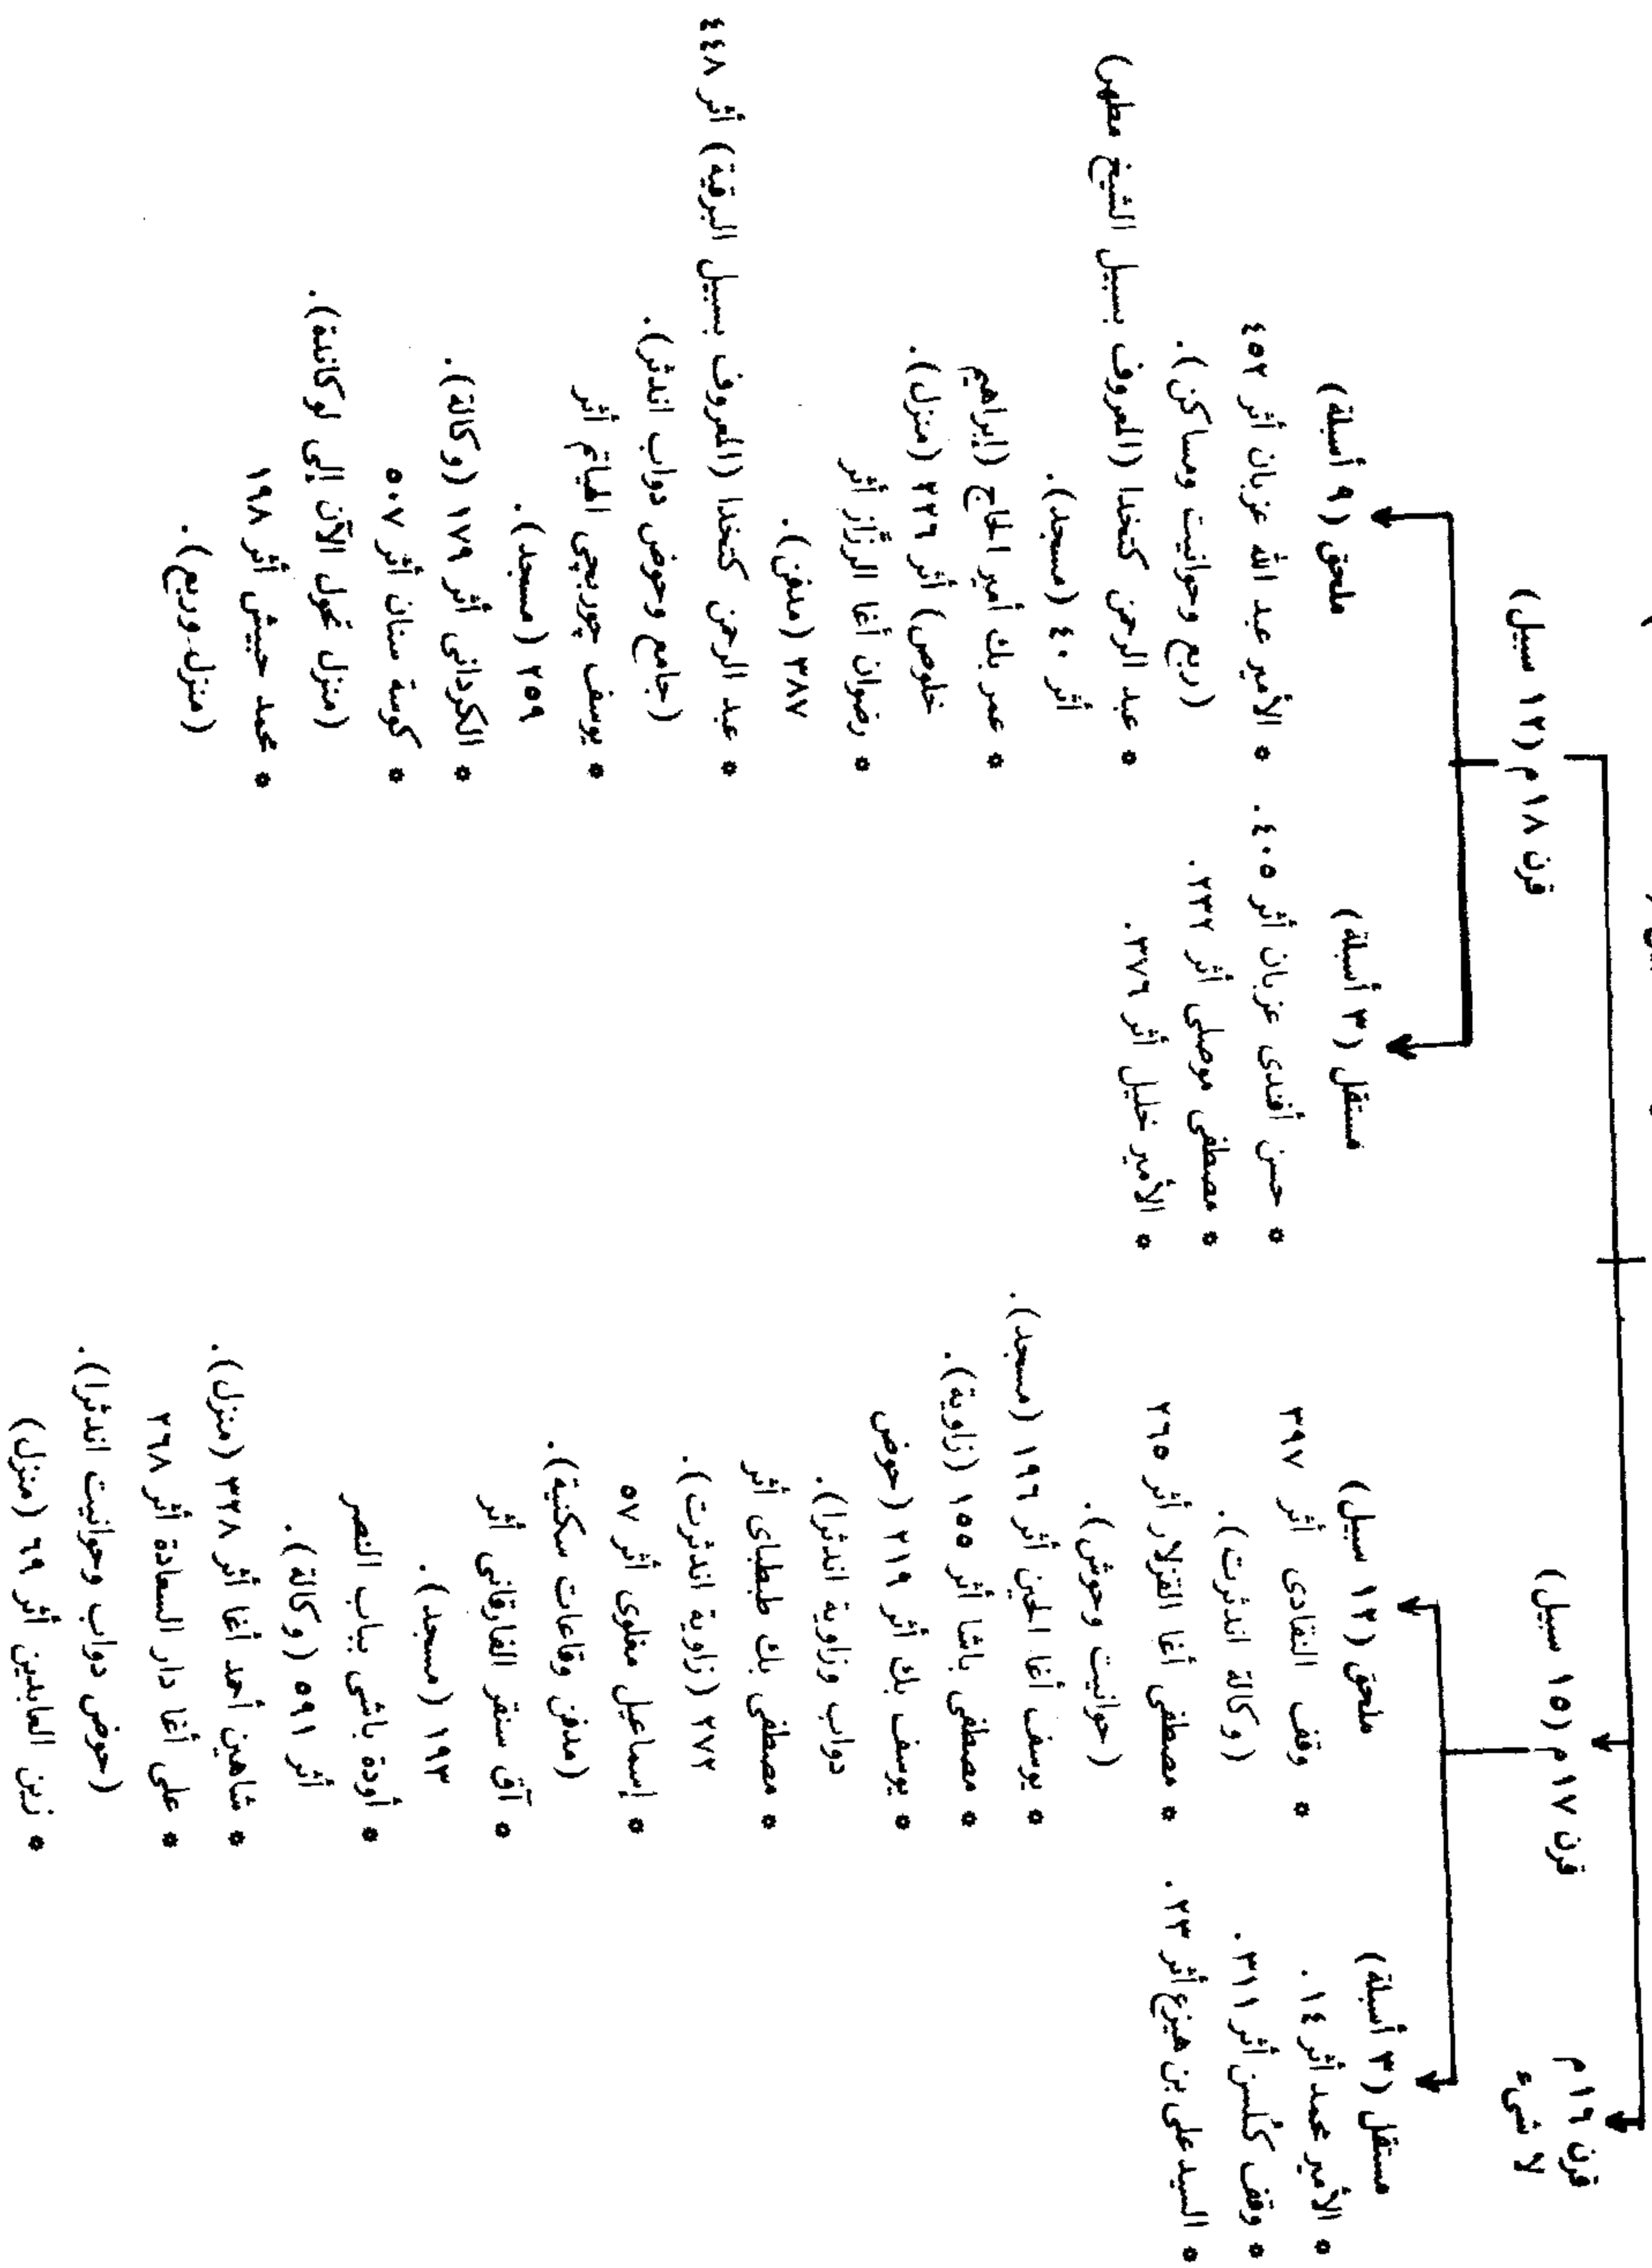 قرن ١٦ م
لا شىء
قرن ١٧ م (١٥ سبيل)
قرن ١٨ م (١٢ سبيل)
مستقل (٣ أسبلة)
* الأمير محمد أثر ١٤ .
* وقف كُلسن أثر ٣١١ .
* السيد على بن هيزع أثر ٢٣ .
ملحق (١٢ سبيل)
* وقف النقادى أثر ٣٩٧
(وكالة اندثرت).
* مصطفى أغا القزلار أثر ٢٦٥
(حوانيت وحوش).
* يوسف أغا الحين أثر ١٩٦ (مسجد).
* مصطفى باشا أثر ١٥٥ (زاوية).
* يوسف بك أثر ٢١٩ (حوض
دواب وزاوية اندثرا).
* مصطفى بك طبطباى أثر
٢٧٢ (زاوية اندثرت).
* إسماعيل مغلوى أثر ٥٧
(مدفن وقاعات سكنية).
* آق سنقر الفارقانى أثر
١٩٣ (مسجد).
* أودة باشى بباب النصر
أثر ٥٩١ (وكالة).
* شاهين أحمد أغا أثر ٣٢٨ (منزل).
* على أغا دار السعادة أثر ٢٦٨
(حوض دواب وحوانيت اندثرا).
* زين العابدين أثر ٦٩ (منزل)
مستقل (٣ أسبلة)
* حسن أفندى عزبان أثر ٤٠٥ .
* مصطفى موصلى أثر ٢٣٢ .
* الأمير خليل أثر ٣٧٦ .
ملحق (٩ أسبلة)
* الأمير عبد الله عزبان أثر ٤٥٢
(ربع وحوانيت ومساكن).
* عبد الرحمن كتخدا (المعروف بسبيل الشيخ مطهر)
أثر ٤٠ (مسجد).
* عمر بك أمير الحاج (إبراهيم
خلوصى) أثر ٢٢٦ (منزل).
* رضوان أغا الرزاز أثر
٣٨٧ (مدفن).
* عبد الرحمن كتخدا (المعروف بسبيل البرقية) أثر ٤٤٨
(جامع وحوض دواب اندثر).
* يوسف چوربچى الهياتم أثر
٢٥٩ (مسجد).
* الكردانى أثر ١٧٩ (وكالة).
* كوسة سنان أثر ٥٠٧
(منزل تحول الآن إلى لوكاندة).
* محمد حبيش أثر ١٩٨
(منزل وربع).